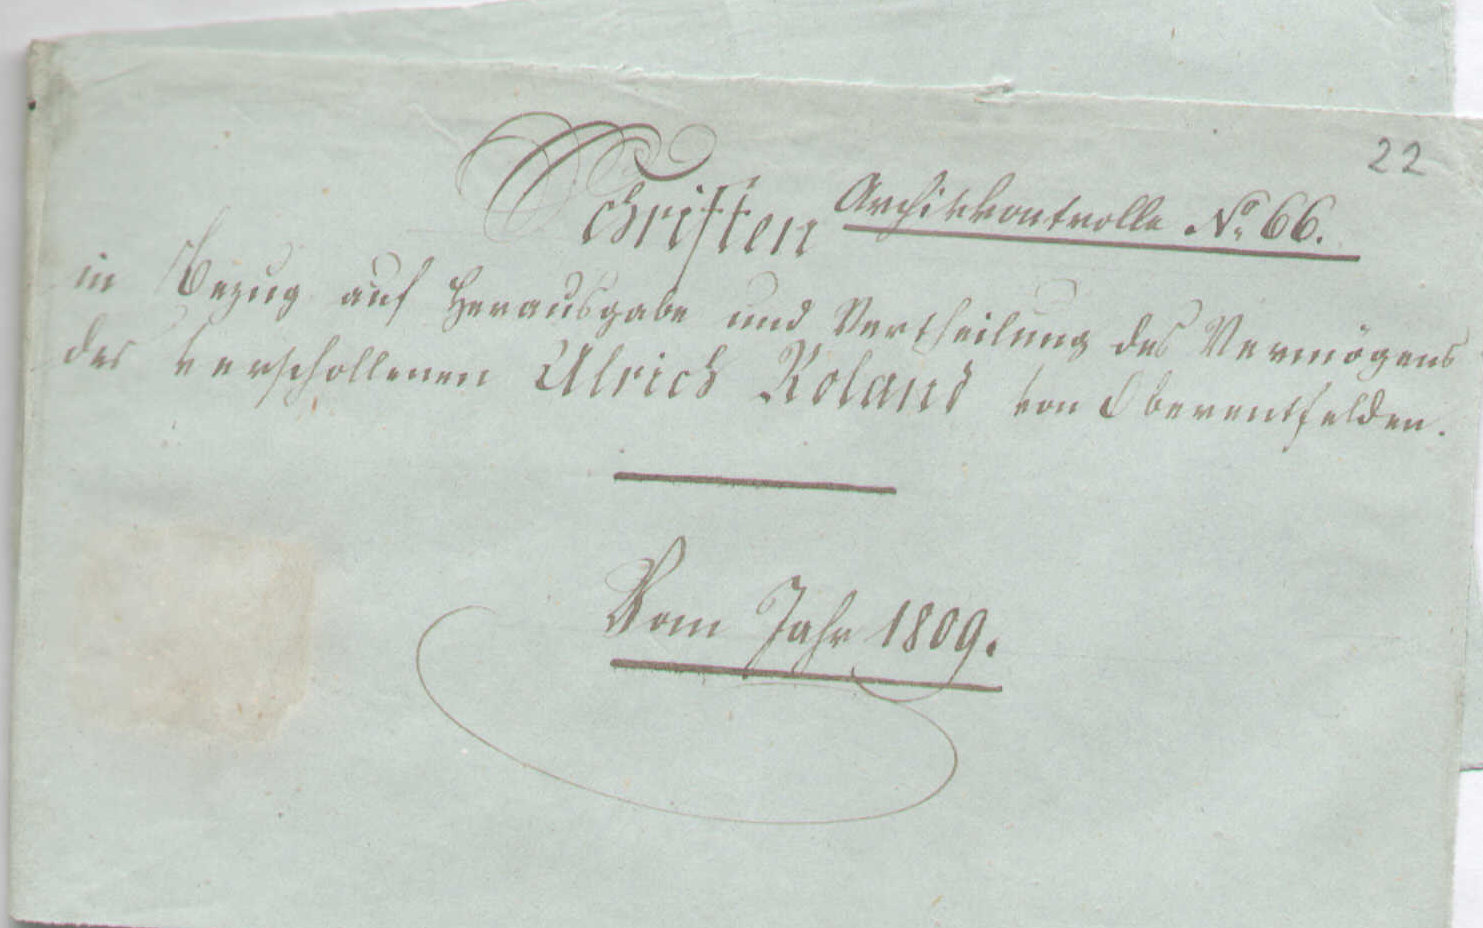 22
Schriften Archivkontrolle No. 66.
in Bezug auf Herausgabe und Vertheilung des Vermögens
des verschollenen Ulrich Roland von Oberentfelden.
Vom Jahr 1809.